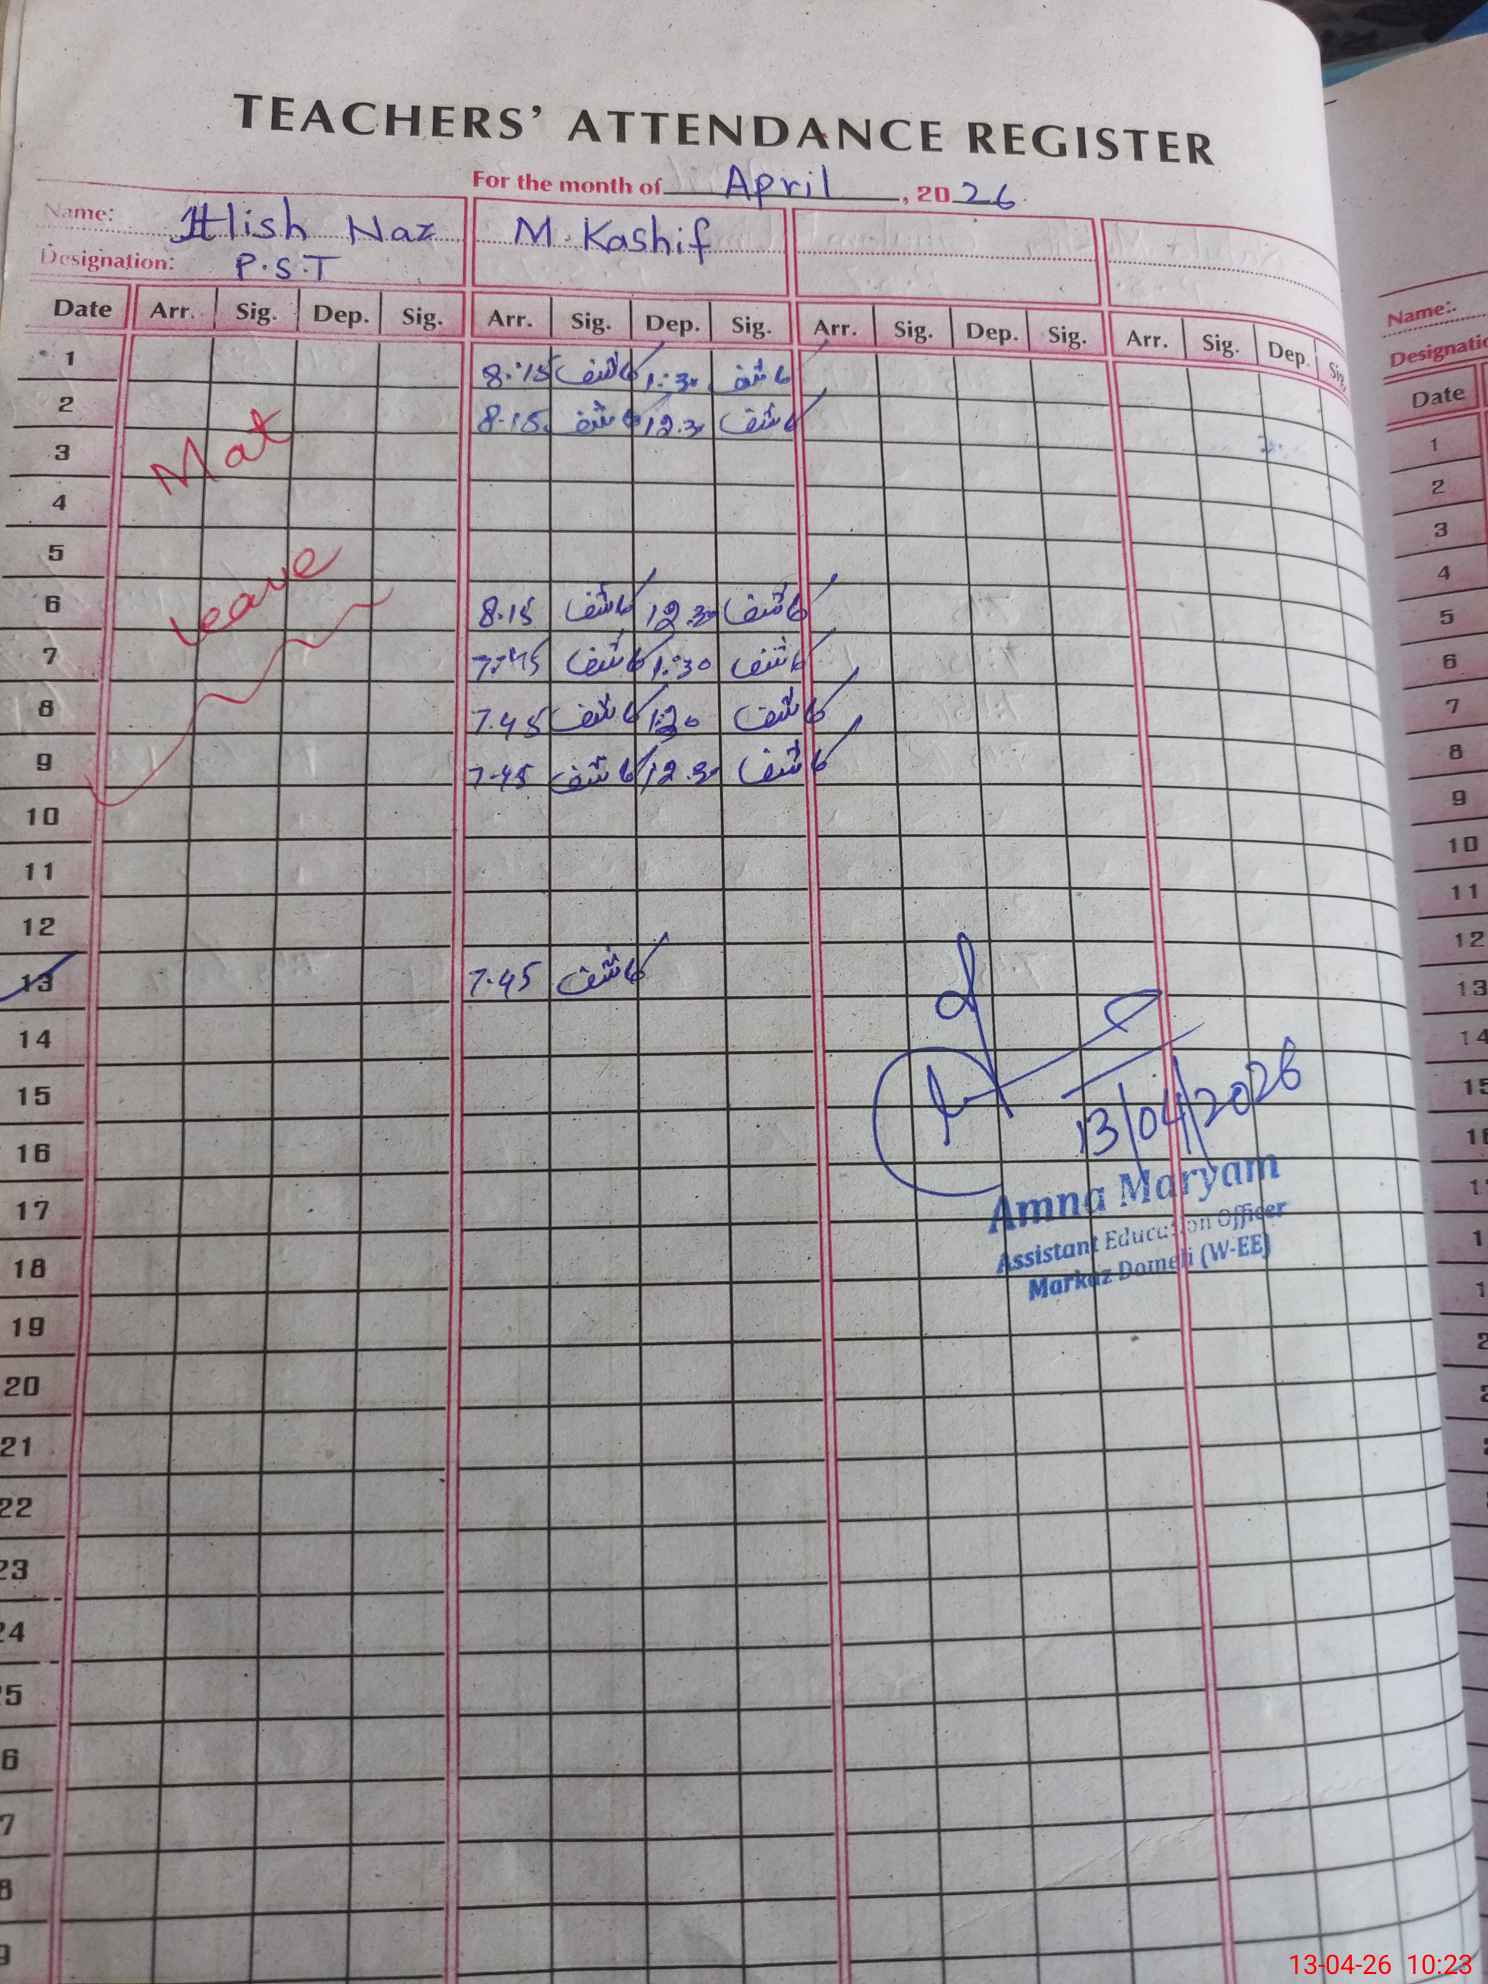 TEACHERS' ATTENDANCE REGISTER
For the month of April, 2026.
Name: Hlish Naz M. Kashif
Designation: P.S.T
Date Arr. Sig. Dep. Sig. Arr. Sig. Dep. Sig. Arr. Sig. Dep. Sig. Arr. Sig. Dep. Sig.
1 8:15 کاشف 1:30 کاشف
2 8.15 کاشف 12.30 کاشف
Mat
3
4
5
leave
6 8.15 کاشف 12.30 کاشف
7 7:45 کاشف 1:30 کاشف
8 7.45 کاشف 1:30 کاشف
9 7.45 کاشف 12.30 کاشف
10
11
12
13 7.45 کاشف
14
15
13/04/2026
16
Amna Maryam
17
Assistant Education Officer
Markaz Domeli (W-EE)
18
19
20
21
22
23
24
25
6
7
8
9
Name:
Designatio
Date
1
2
3
4
5
6
7
8
9
10
11
12
13
14
15
13-04-26 10:23